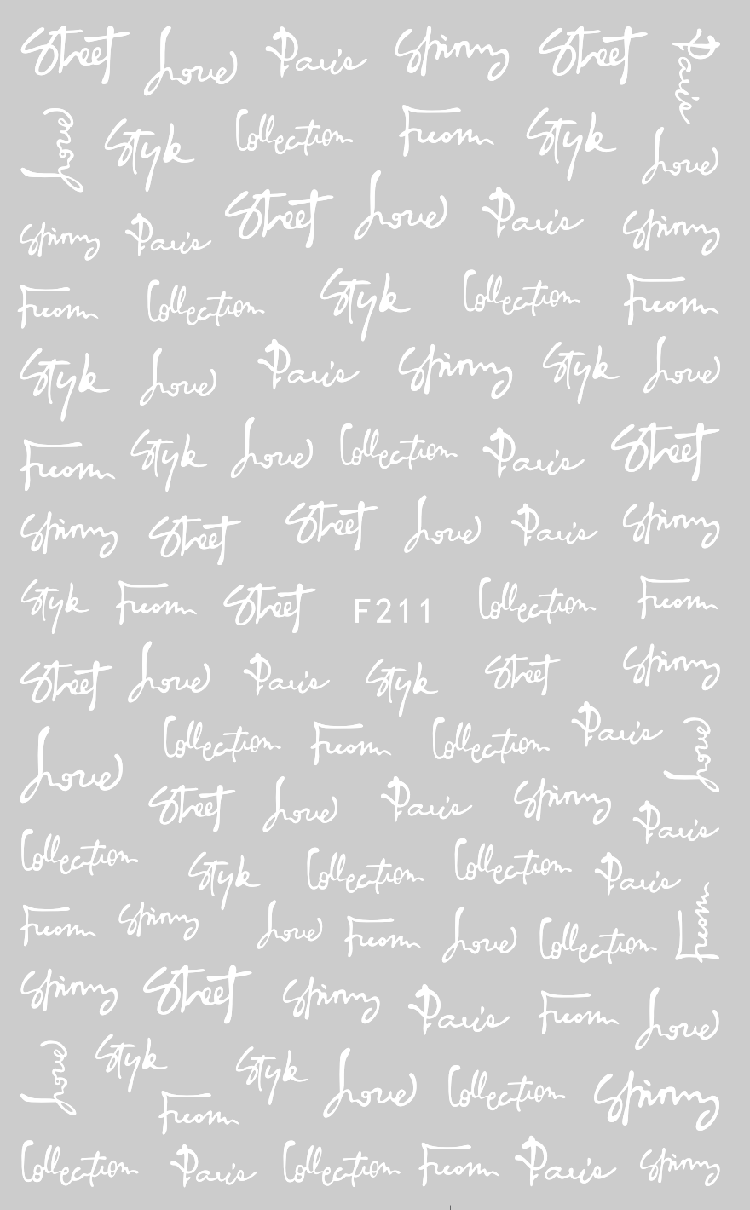 Street Love Paris Spinny Street Paris
Love Style Collection From Style Love
Spinny Paris Street Love Paris Spinny
From Collection Style Collection From
Style Love Paris Spinny Style Love
From Style Love Collection Paris Street
Spinny Street Street Love Paris Spinny
Style From Street F211 Collection From
Street Love Paris Style Street Spinny
Love Collection From Collection Paris Love
Street Love Paris Spinny Paris
Collection Style Collection Collection Paris
From Spinny Love From Love Collection From
Spinny Street Spinny Paris From Love
Love Style From Style Love Collection Spinny
Collection Paris Collection From Paris Spinny